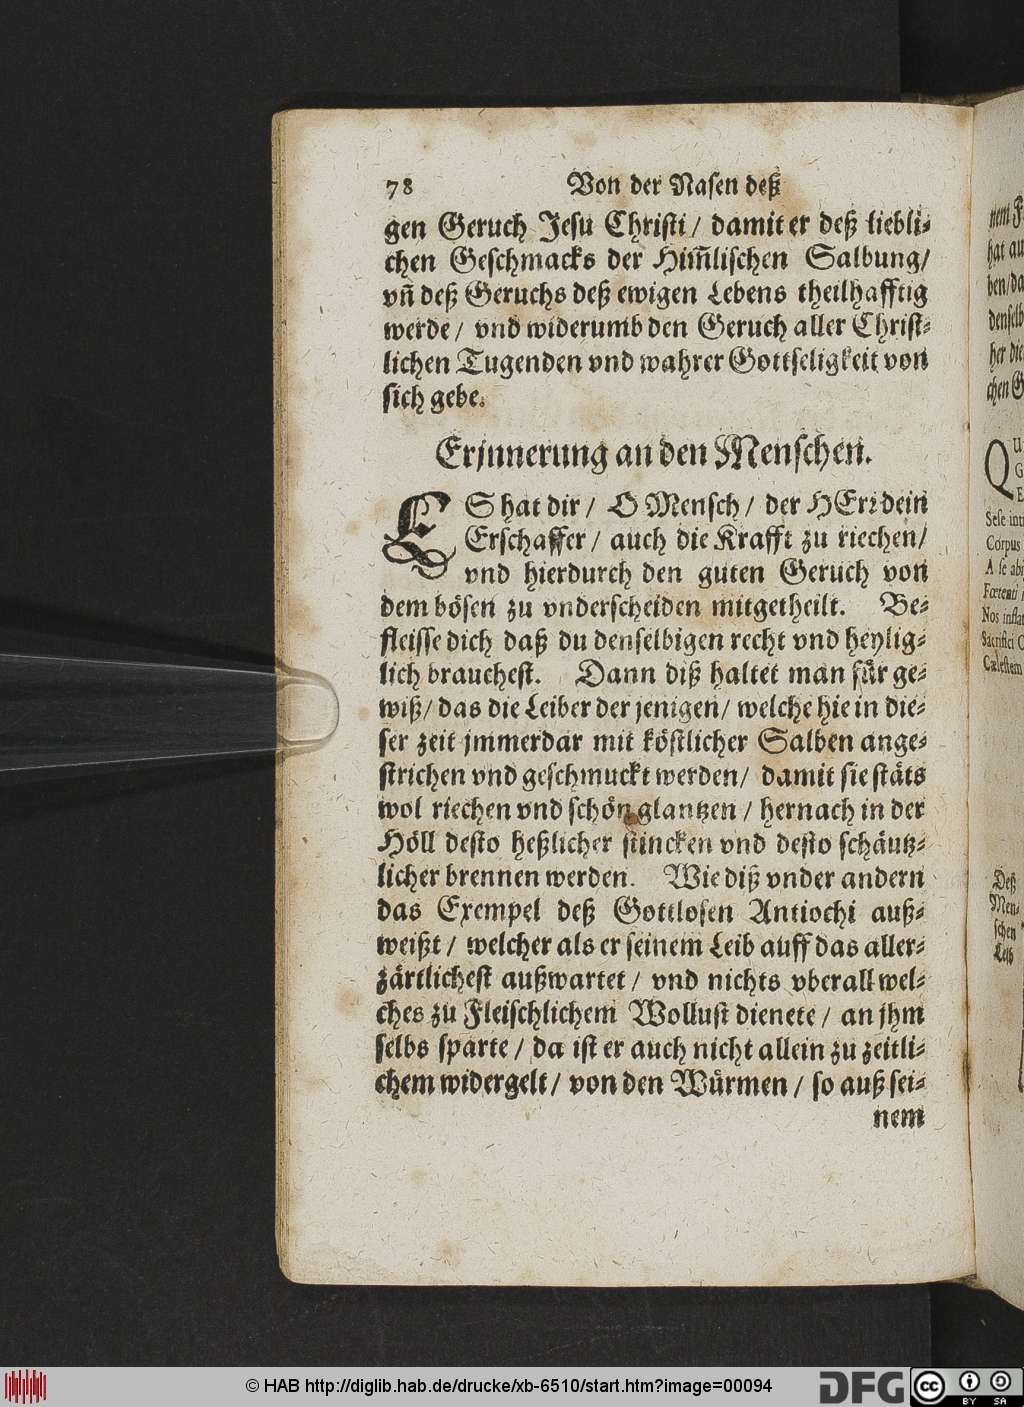 78 Von der Nasen deß
gen Geruch Jesu Christi / damit er deß liebli-
chen Geschmacks der Him̃lischen Salbung/
vñ deß Geruchs deß ewigen Lebens theilhafftig
werde / vnd widerumb den Geruch aller Christ-
lichen Tugenden vnd wahrer Gottseligkeit von
sich gebe.
Erjnnerung an den Menschen.
ES hat dir / O Mensch / der HErr dein
Erschaffer / auch die Krafft zu riechen/
vnd hierdurch den guten Geruch von
dem bösen zu vnderscheiden mitgetheilt. Be-
fleisse dich daß du denselbigen recht vnd heylig-
lich brauchest. Dann diß haltet man für ge-
wiß/ das die Leiber der jenigen/ welche hie in die-
ser zeit jmmerdar mit köstlicher Salben ange-
strichen vnd geschmuckt werden/ damit sie stäts
wol riechen vnd schön glantzen / hernach in der
Höll desto heßlicher stincken vnd desto schäutz-
licher brennen werden. Wie diß vnder andern
das Exempel deß Gottlosen Antiochi auß-
weißt / welcher als er seinem Leib auff das aller-
zärtlichest außwartet / vnd nichts vberall wel-
ches zu Fleischlichem Wollust dienete / an jhm
selbs sparte / da ist er auch nicht allein zu zeitli-
chem widergelt / von den Würmen / so auß sei-
nem
nem
hat au
ben/da
denselb
her die
chen G
QU
G
E
Sese int
Corpus
A se abi
Fœtenti
Nos infla
Sacrifici
Cælestem
Deß
Men-
schen
Leib
© HAB http://diglib.hab.de/drucke/xb-6510/start.htm?image=00094
DFG
cc BY SA